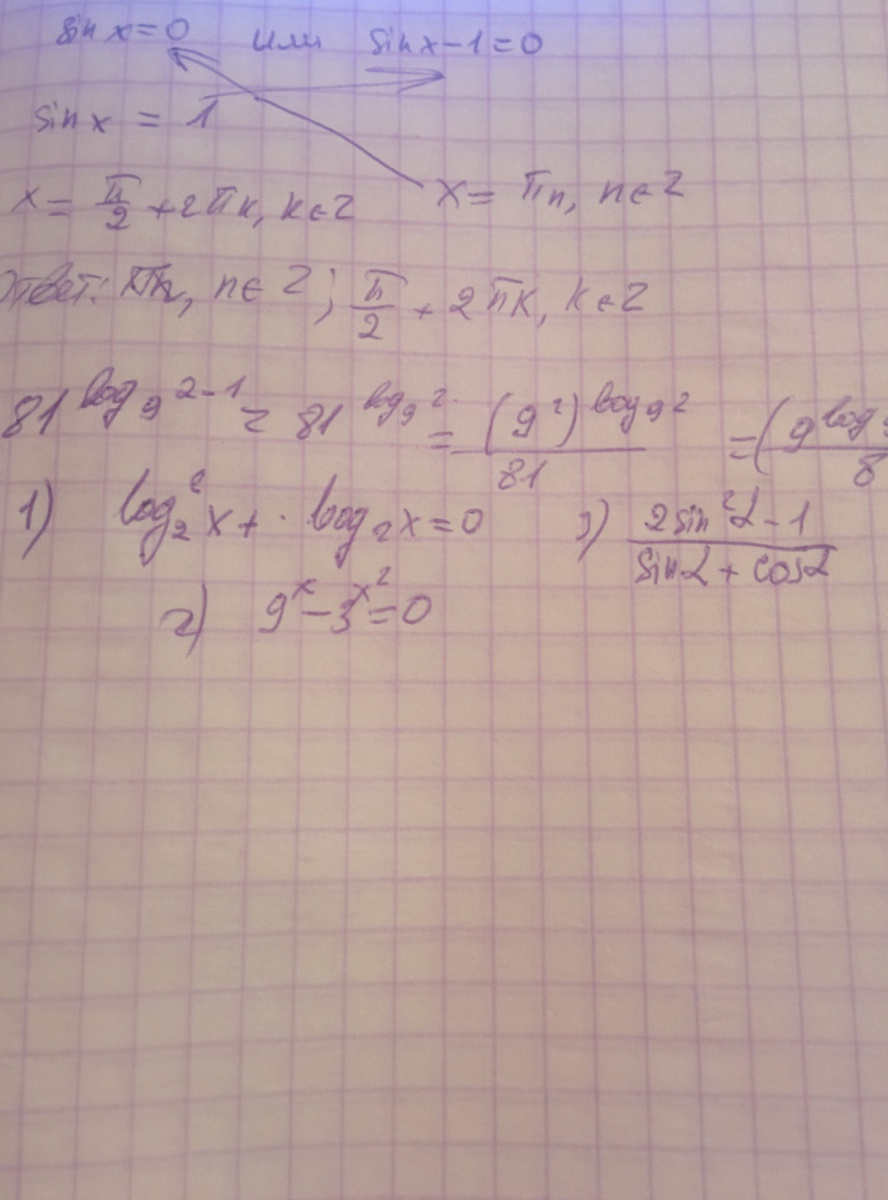 sin x = 0 или sin x - 1 = 0
sin x = 1
x = π/2 + 2πk, k ∈ Z x = πn, n ∈ Z
Ответ: πn, n ∈ Z; π/2 + 2πk, k ∈ Z
81^(log₉2-1) = 81^(log₉2) = (9²)^(log₉2)/81 = (9^log
1) log₂²x + · log₂x = 0 3) (2sin²α - 1)/(sinα + cosα)
2) 9^x - 3^(x²) = 0